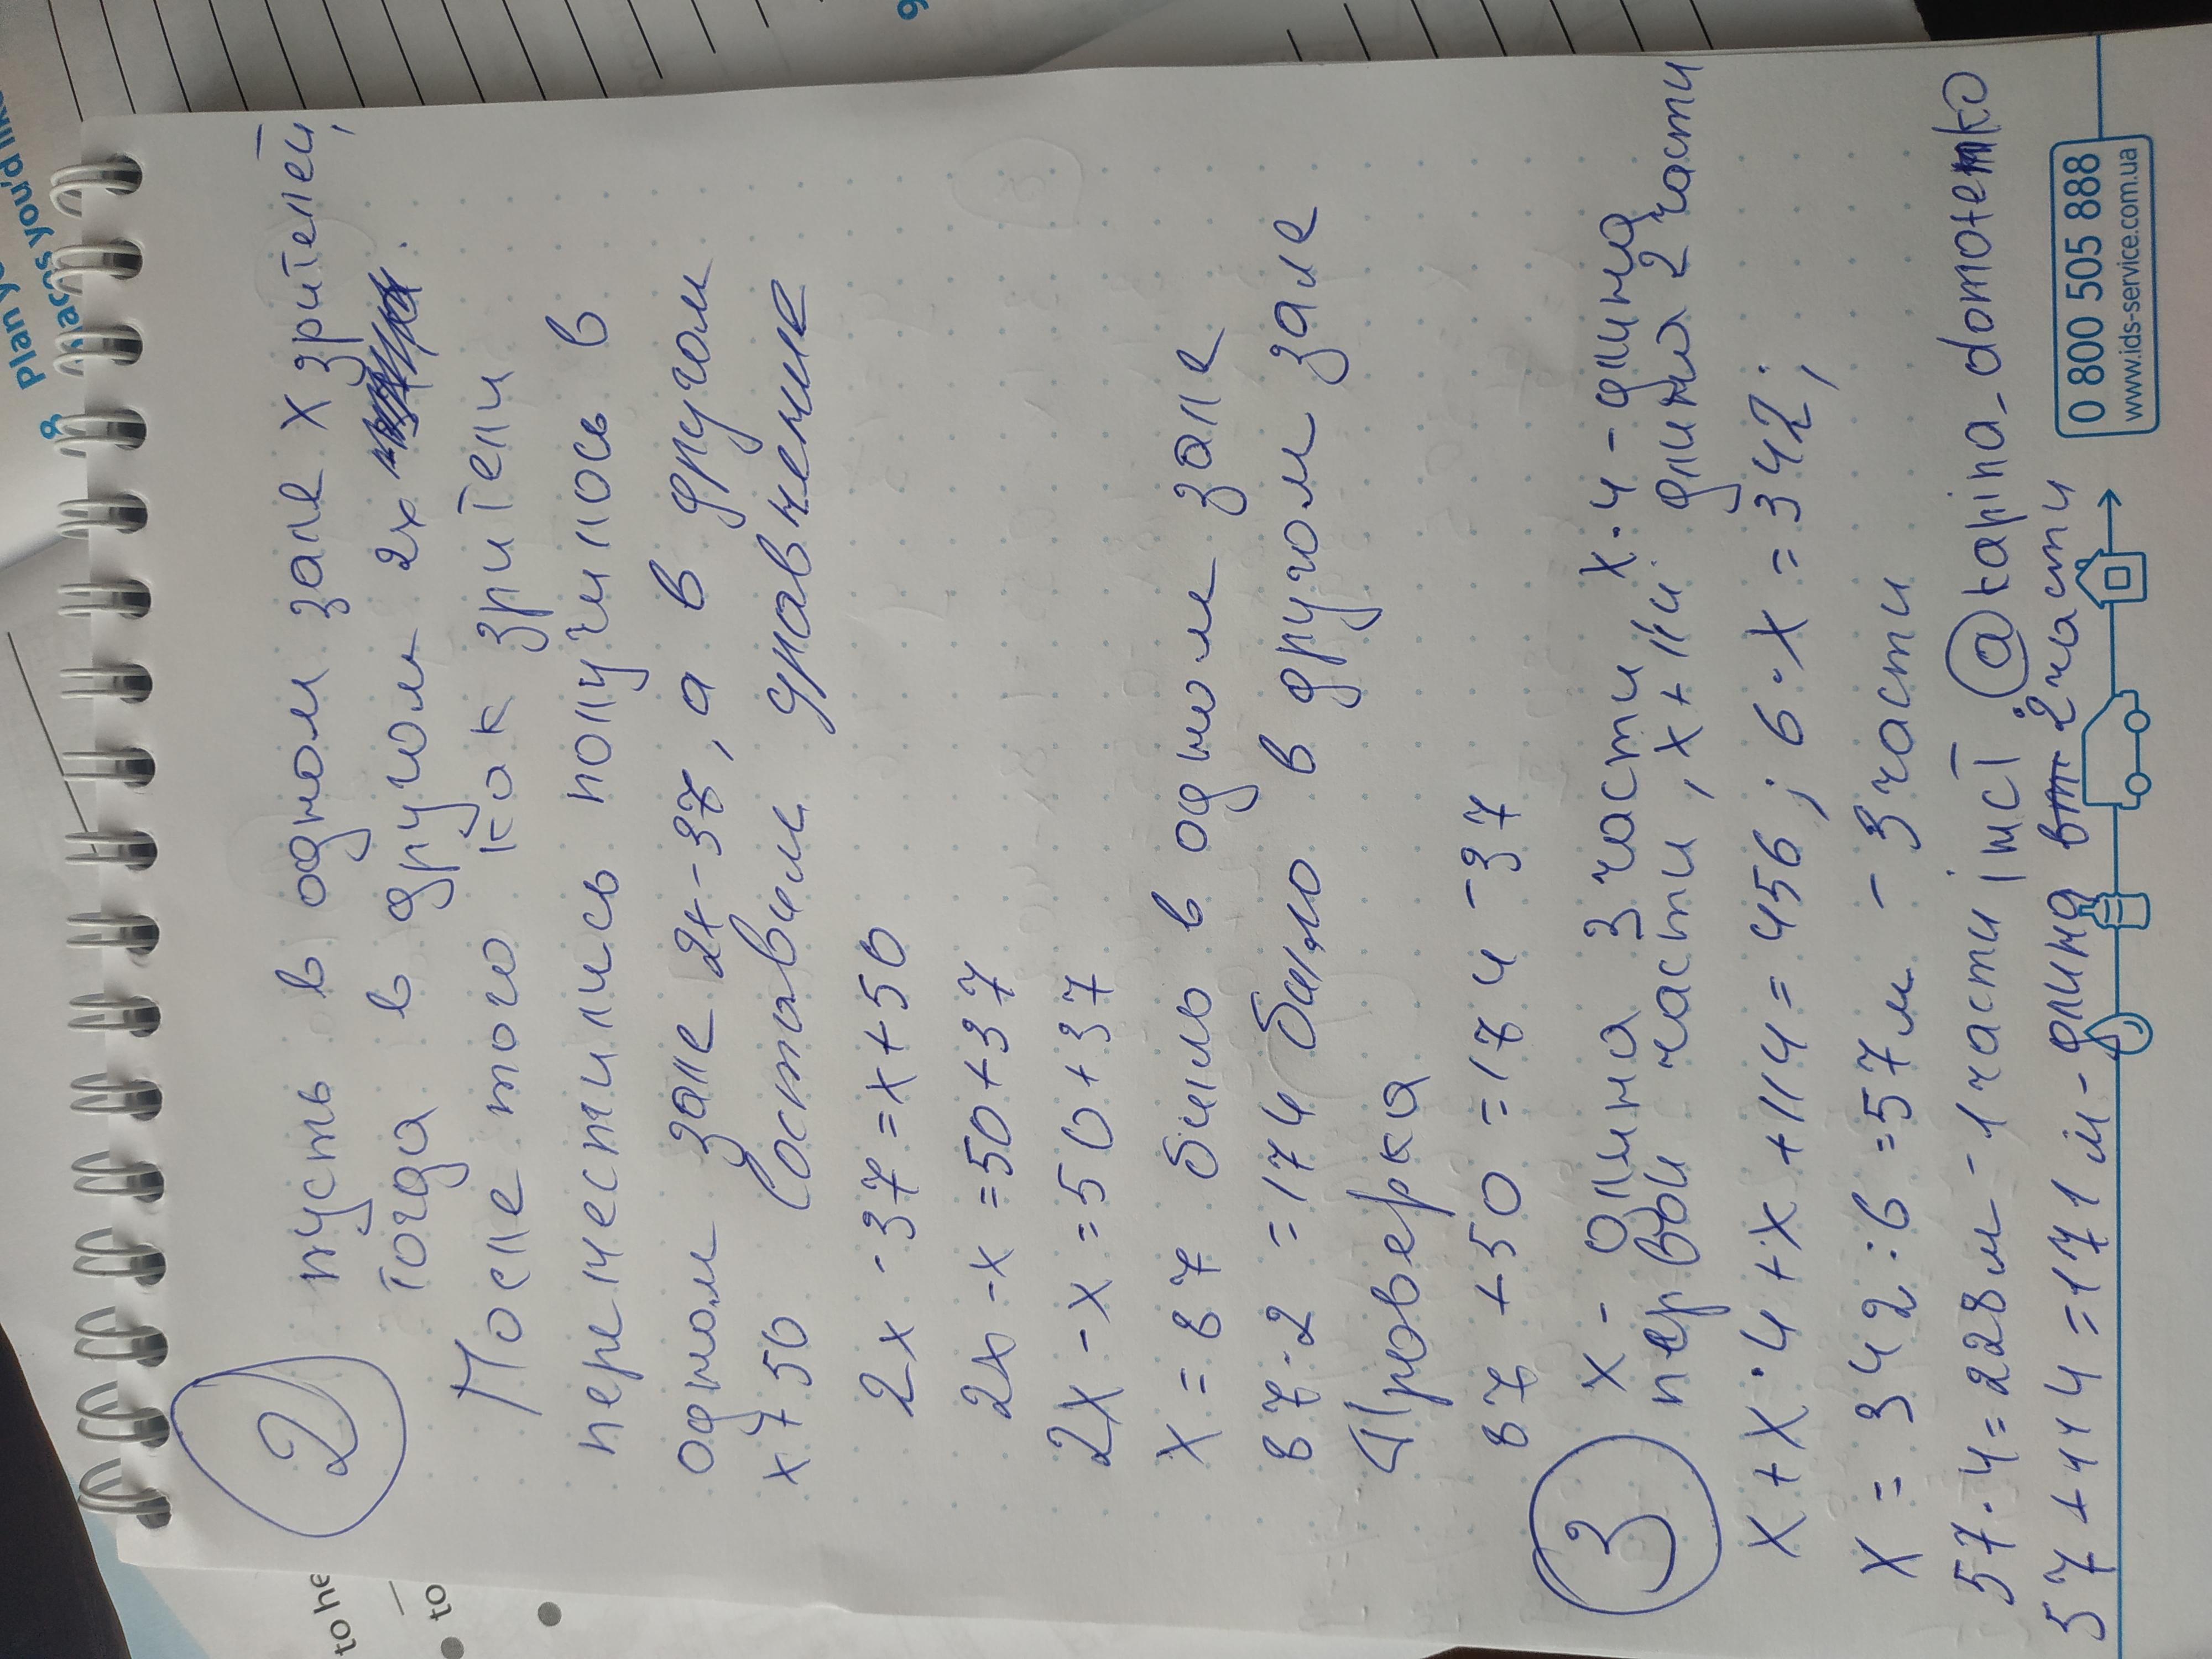 Plan yo
places you'd like
to he
to
2
пусть в одном зале х зрителей,
тогда в другом 2х
После того как зрители
переместились получилось в
одном зале 2х-37, а в другом
х+50 Составим уравнение
2х - 37 = х + 50
2х - х = 50 + 37
2х - х = 50 + 37
х = 87 было в одном зале
87·2 = 174 было в другом зале
Проверка
87 + 50 = 174 - 37
3
х - длина 3 части х·4 - длина
первой части, х + 114 длина 2 части
х + х·4 + х + 114 = 456; 6·х = 342;
х = 342 : 6 = 57м - 3 части
57·4 = 228м - 1 части інст @karina_domotenko
57 + 114 = 171 м - длина 2 части
0 800 505 888
www.ids-service.com.ua